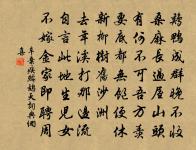 鷄鴨成群晚不收
桑麻長過屋山頭
有何不可吾方羨
要底都無飽便休
新柳樹舊沙洲
去年溪打那邊流
自言此地生兒女
不嫁金家即聘周
辛棄疾鷓鴣天詞典網